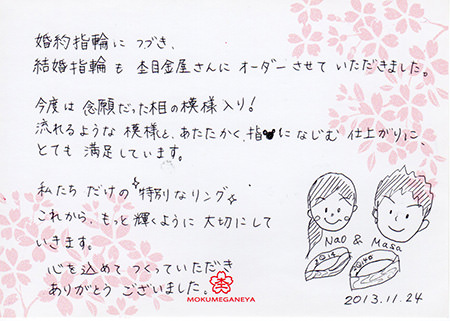 婚約指輪に つづき、
結婚指輪も 杢目金屋さんに オーダーさせて いただきました。
今度は 念願だった 木目の模様入り!
流れるような 模様と、あたたかく、指になじむ 仕上がりに、
とても 満足しています。
私たち だけの "特別なリング"
これから、もっと 輝くように 大切にして
いきます。
心を込めて つくっていただき
ありがとう ございました。
Nao & Masa
2013.11.24
MOKUMEGANEYA